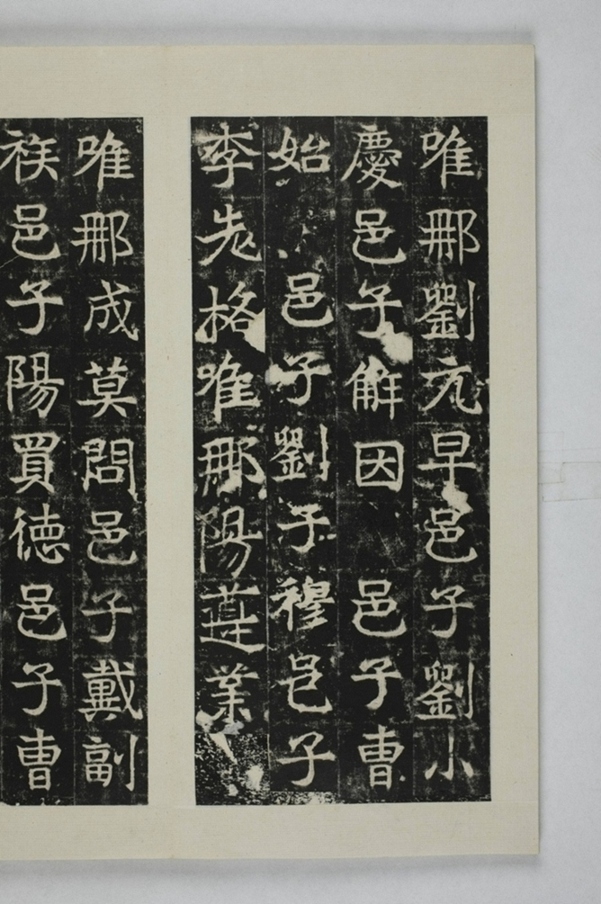 唯那劉元早邑子劉小
慶邑子解因邑子曹
始邑子劉子穆邑子
李老格唯那陽蓮業
唯那成莫問邑子戴副
族邑子陽買德邑子曹